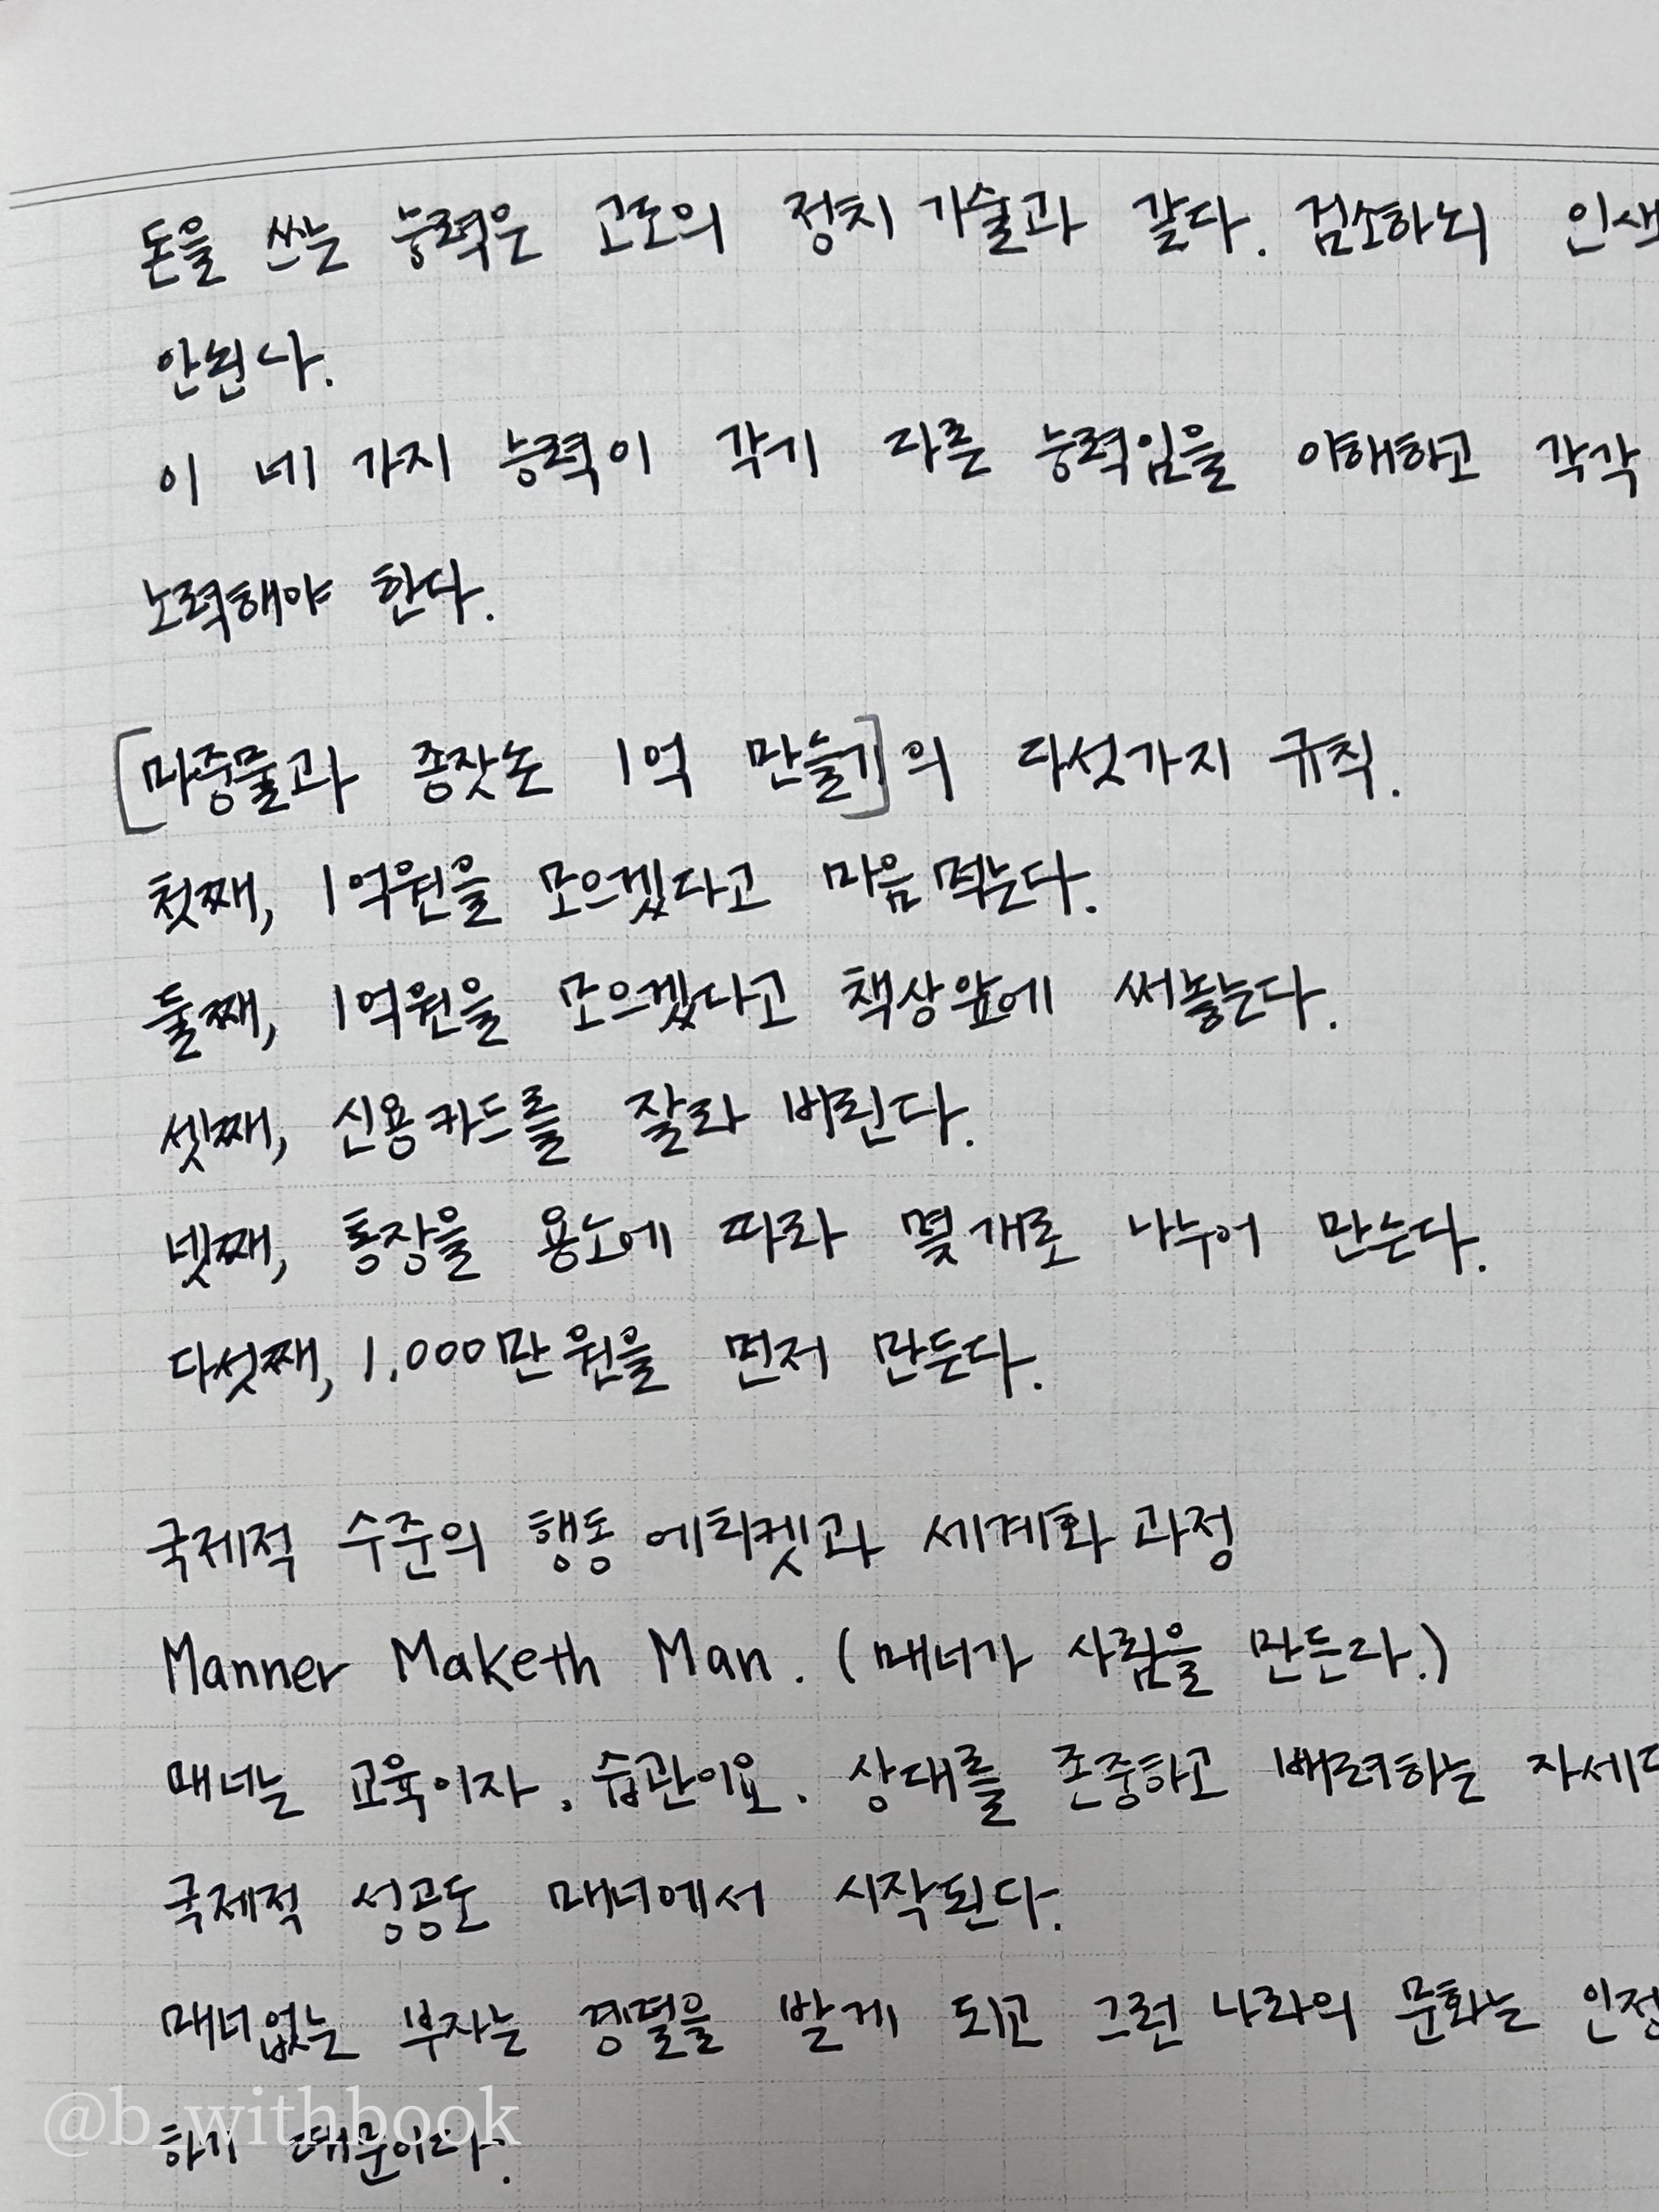 돈을 쓰는 능력은 고도의 정치 기술과 같다. 검소하되
안된다.
이 네 가지 능력이 각기 다른 능력임을 이해하고 각각
노력해야 한다.
[마중물과 종잣돈 1억 만들기]의 다섯가지 규칙.
첫째, 1억원을 모으겠다고 마음먹는다.
둘째, 1억원을 모으겠다고 책상앞에 써놓는다.
셋째, 신용카드를 잘라 버린다.
넷째, 통장을 용도에 따라 몇개로 나누어 만든다.
다섯째, 1,000만원을 먼저 만든다.
국제적 수준의 행동 에티켓과 세계화 과정
Manner Maketh Man. (매너가 사람을 만든다.)
매너는 교육이자, 습관이요. 상대를 존중하고 배려하는
국제적 성공도 매너에서 시작된다.
매너없는 부자는 경멸을 받게 되고 그런 나라의 문화는
하기 때문이다.
@b_withbook